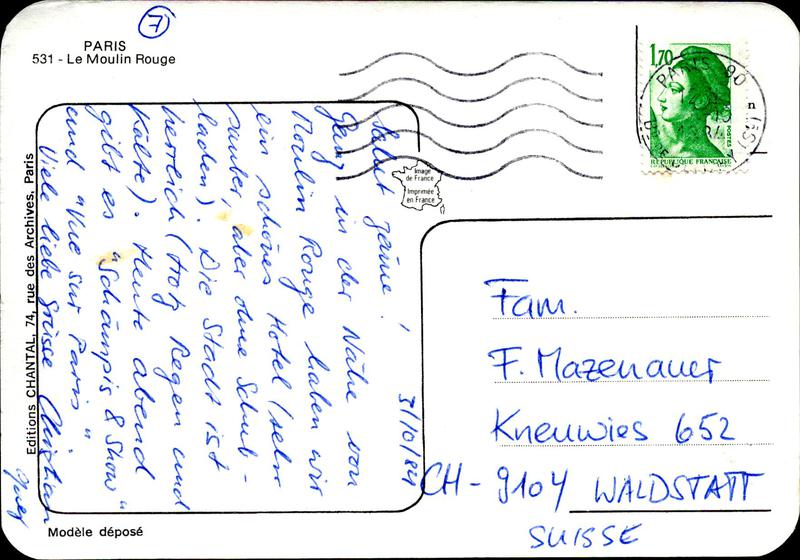 7
PARIS
531 - Le Moulin Rouge
1,70
POSTES
REPUBLIQUE FRANÇAISE
PARIS 80
Image
de France
Imprimée
en France
31/10/84
Salut zäme!
Ganz in der Nähe von
Moulin Rouge haben wir
ein schönes Hotel (sehr
sauber, aber ohne Schub-
laden). Die Stadt ist
herrlich (trotz Regen und
Kälte). Heute abend
gibt es "Schämpis & Show"
und "Vue sur Paris"
Viele liebe Grüsse Christian
Fam.
F. Mazenauer
Kneuwies 652
CH-9104 WALDSTATT
SUISSE
Editions CHANTAL, 74, rue des Archives, Paris
Modèle déposé